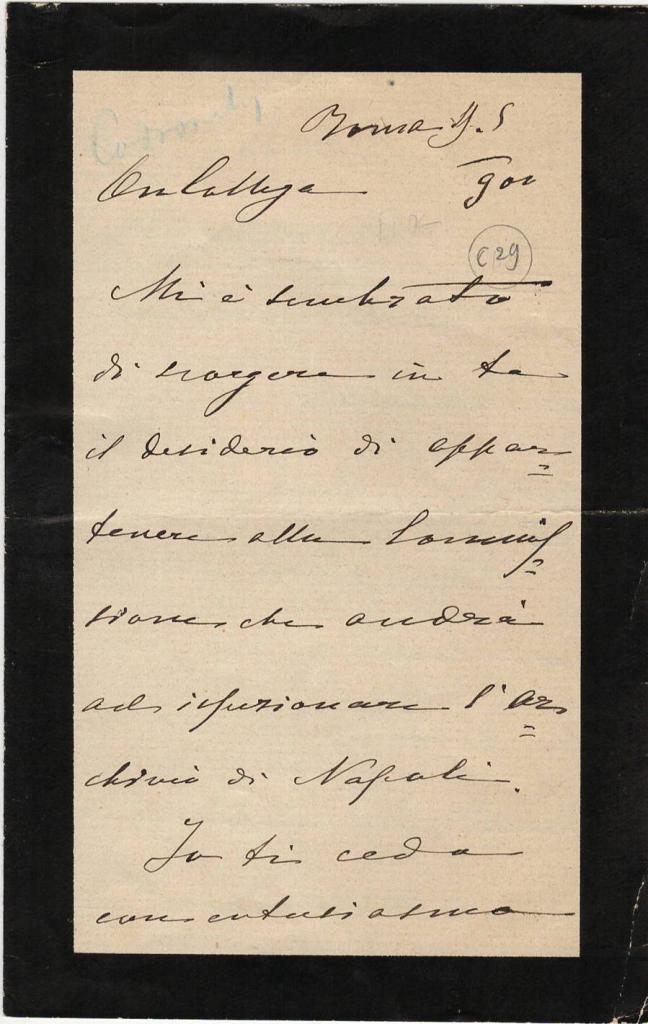 Roma 9.5
On Collega 901
C 29
Mi è sembrato
di scorgere in te
il desiderio di appar=
tenere alla Commis=
sione che andrà
ad ispezionare l'ar=
chivio di Napoli.
Io ti cedo
con entusiasmo